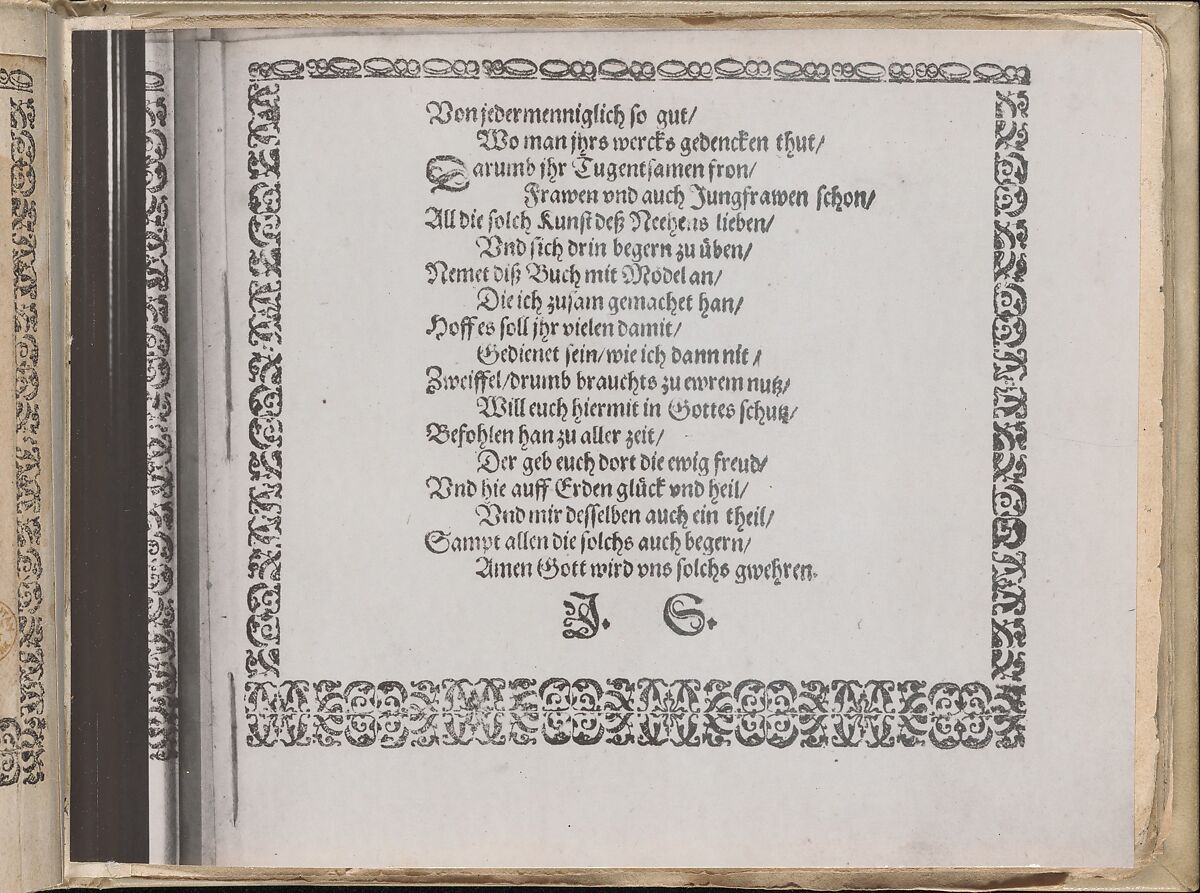 Von jedermenniglich so gut/
Wo man jhrs wercks gedencken thut/
Darumb jhr Tugentsamen fron/
Frawen vnd auch Jungfrawen schon/
All die solch Kunst deß Neehens lieben/
Vnd sich drin begern zu üben/
Nemet diß Buch mit Mödel an/
Die ich zusam gemachet han/
Hoff es soll jhr vielen damit/
Gedienet sein/ wie ich dann nit/
Zweiffel/ drumb brauchts zu ewrem nutz/
Will euch hiermit in Gottes schutz/
Befohlen han zu aller zeit/
Der geb euch dort die ewig freud/
Vnd hie auff Erden glück vnd heil/
Vnd mir desselben auch ein theil/
Sampt allen die solchs auch begern/
Amen Gott wird vns solchs gwehren.
J. S.